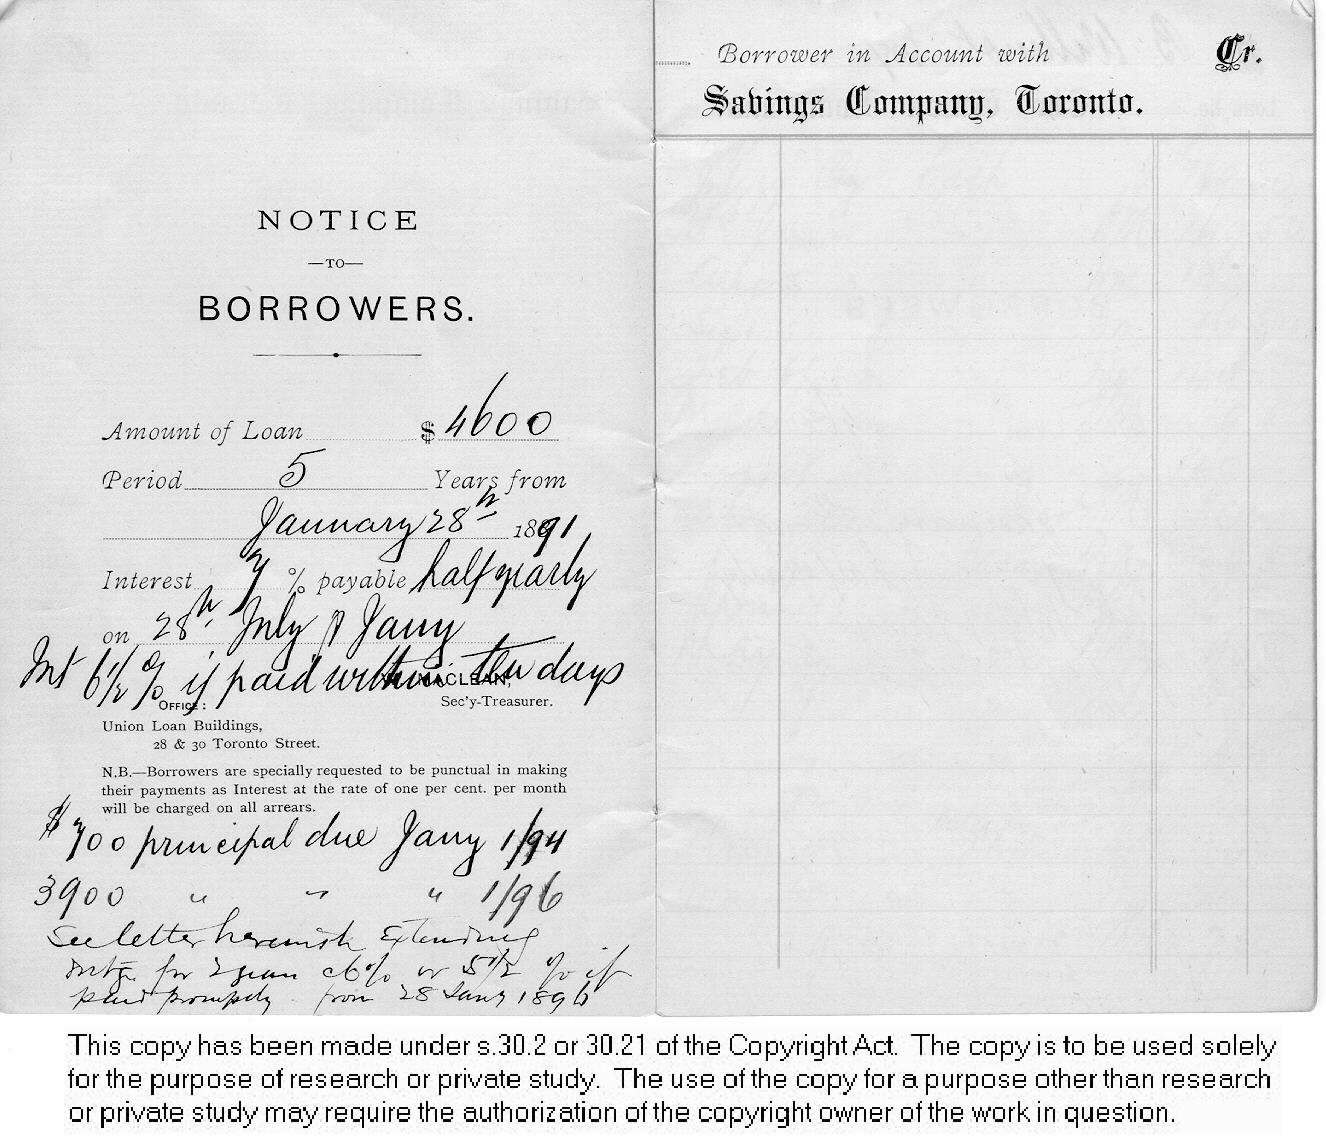 NOTICE
—TO—
BORROWERS.
Amount of Loan $ 4600
Period 5 Years from
January 28th 1891
Interest 7 % payable half yearly
on 28th July & Jany
Int 6½ % if paid within ten days
MACLEAN,
OFFICE: Sec'y-Treasurer.
Union Loan Buildings,
28 & 30 Toronto Street.
N.B.—Borrowers are specially requested to be punctual in making
their payments as Interest at the rate of one per cent. per month
will be charged on all arrears.
$700 principal due Jany 1/94
3900 " " " 1/96
See letter herewith Extending
Mtge for 2 years 6% or 5½ % if
paid promptly from 28 Jany 1896
Borrower in Account with Cr.
Savings Company, Toronto.
This copy has been made under s.30.2 or 30.21 of the Copyright Act. The copy is to be used solely
for the purpose of research or private study. The use of the copy for a purpose other than research
or private study may require the authorization of the copyright owner of the work in question.